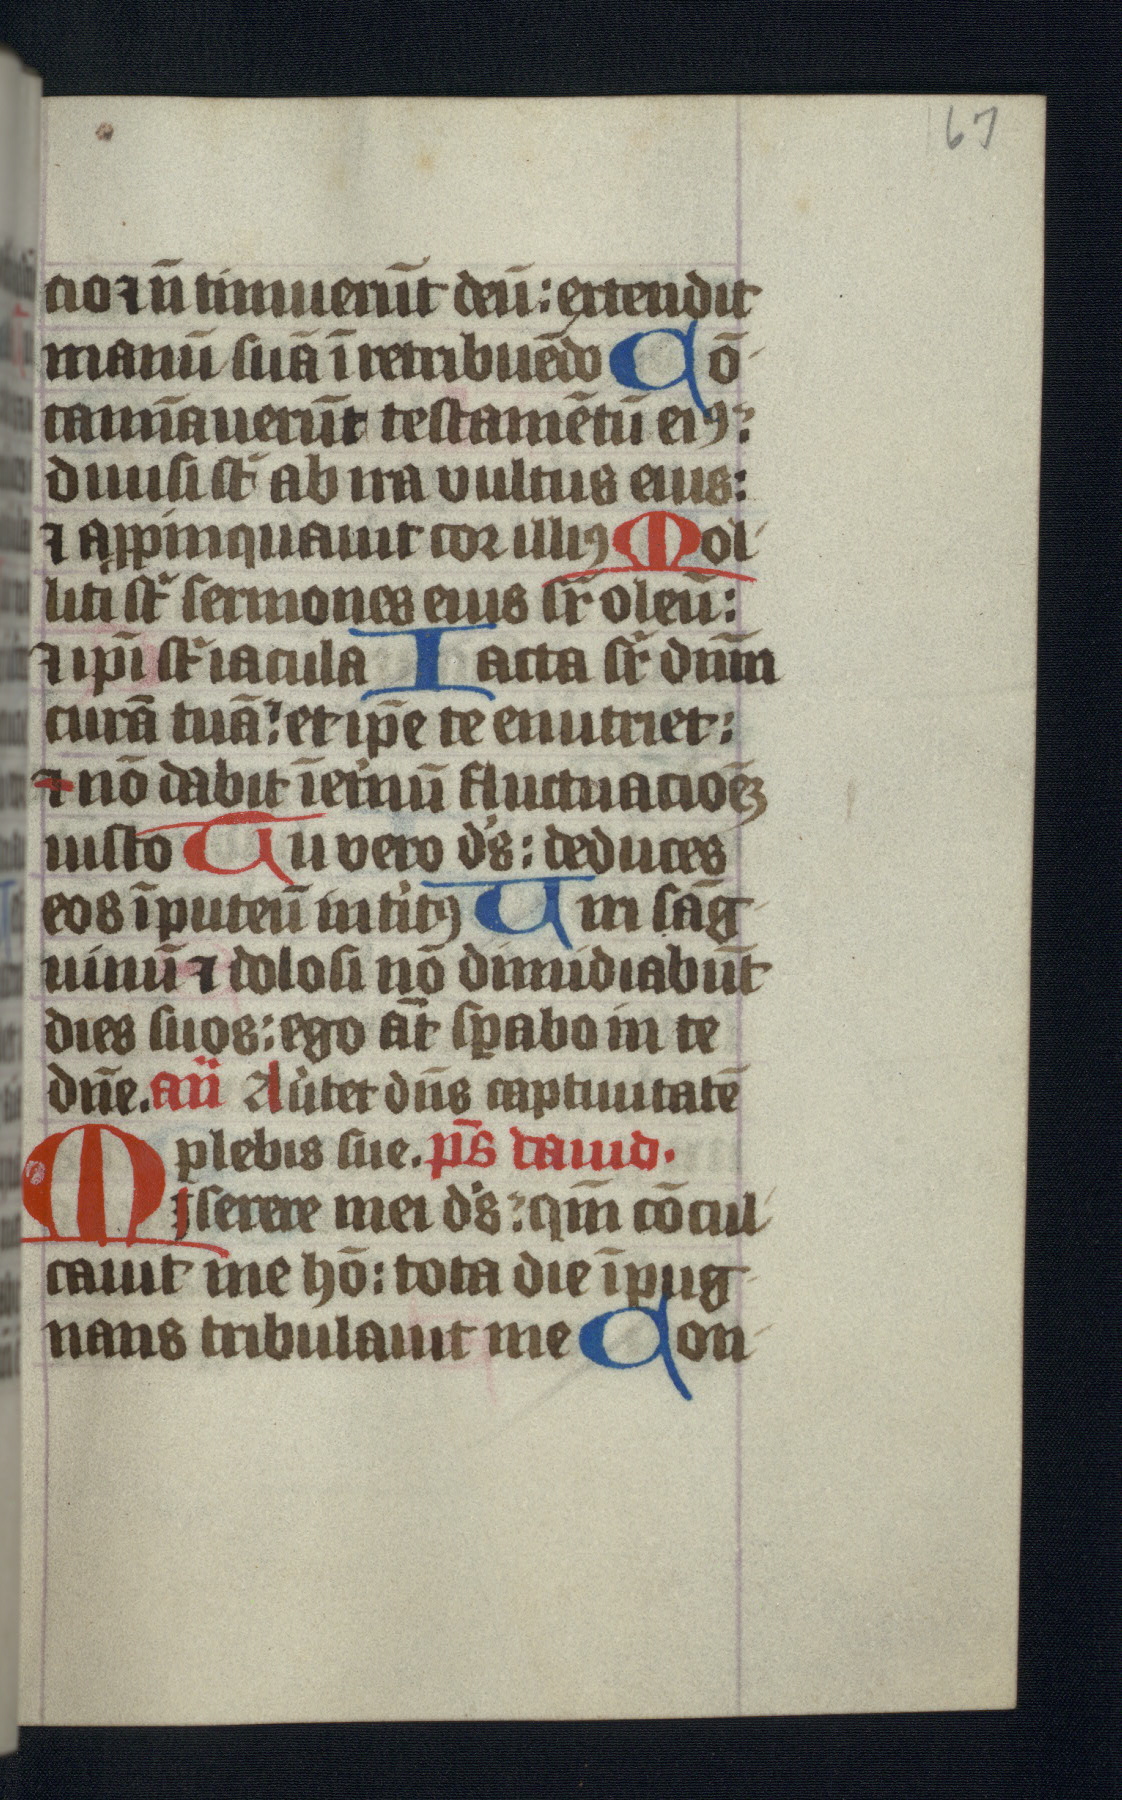 67
cio ⁊ nō timuerūt deū: extendit
manū suā ī retribuēdo Cō-
tamīauerūt testamētū eiꝰ:
diuisi st̄ ab ira vultus eius:
⁊ aꝓpinquauit cor illiꝰ Mol-
liti st̄ sermones eius sr̄ oleū:
⁊ ip̄i st̄ iacula Iacta sr̄ dn̄m
curā tuā: et ip̄e te enutriet:
⁊ nō dabit īet'nū fluctuacioēȝ
iusto Tu vero d's: deduces
eos ī puteū intit'ꝰ Uiri sāg-
uinū ⁊ dolosi nō dimidiabūt
dies suos: ego at̄ sꝑabo in te
dn̄e. an̄ Au'tet dn̄s captiuitatē
plebis sue. ps̄ dauid.
Miserere mei d's: qm̄ cōcul-
cauit me hō: tota die īpug-
nans tribulauit me Con-